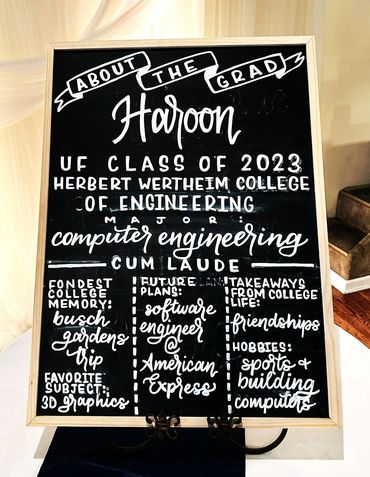 ABOUT THE GRAD
Haroon
UF CLASS OF 2023
HERBERT WERTHEIM COLLEGE
OF ENGINEERING
MAJOR:
computer engineering
CUM LAUDE
FONDEST
COLLEGE
MEMORY:
busch
gardens
trip
FAVORITE
SUBJECT:
3D graphics
FUTURE
PLANS:
software
engineer
@
American
Express
TAKEAWAYS
FROM COLLEGE
LIFE:
friendships
HOBBIES:
sports +
building
computers